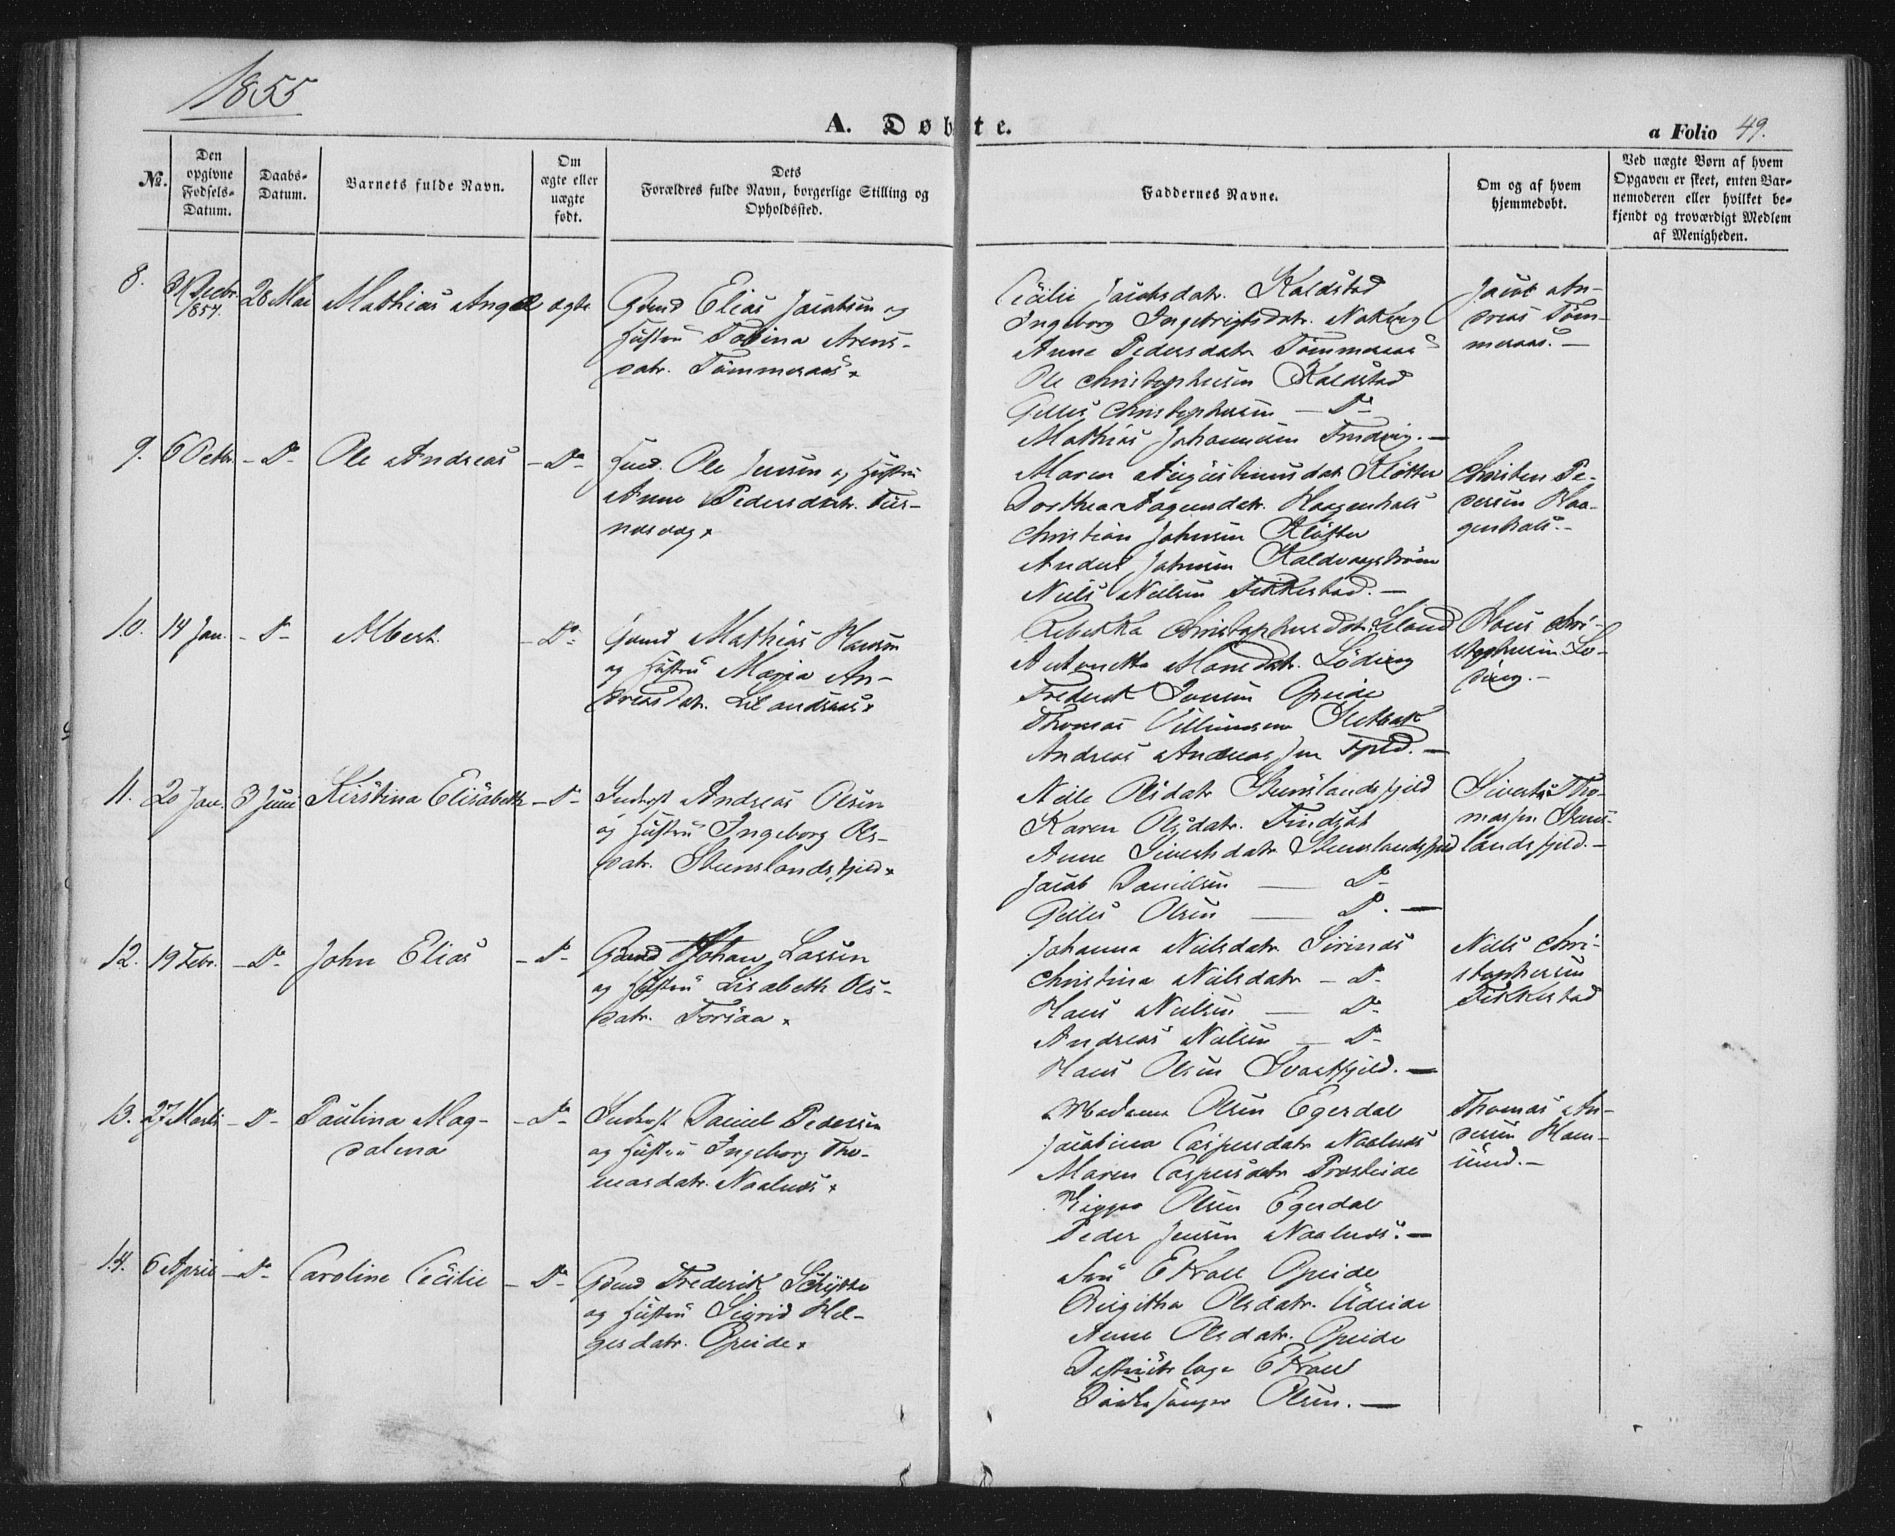 1855
A. Døbte.
a Folio 49.
№.
Den opgivne Fødsels-Datum.
Daabs-Datum.
Barnets fulde Navn.
Om ægte eller uægte født.
Dets Forældres fulde Navn, borgerlige Stilling og Opholdssted.
Faddernes Navne.
Om og af hvem hjemmedøbt.
Ved uægte Børn af hvem Opgaven er skeet, enten Barnemoderen eller hvilket bekjendt og troværdigt Medlem af Menigheden.
8. 31 Decbr 1854. 28 Mai Mathias Angel ægte
Gaard Elias Jacobsen og
Hustru Tobina Arens-
datr. Tømmeraas
Cecilie Jacobsdatr. Kaldstad
Ingeborg Ingebrigtsdatr.
Anne Pedersdatr Tømmeraas
Ole Christophersen Kaldstad
Christophersen — Do
Mathias Johannesen
Jacob An-
dreas Töm-
meraas. —
9. 6 Octbr - Do - Ole Andreas - Do -
Huusmd. Ole Jensen og Hustru
Anne Pedersdatr.
Maren Augustinusdatr Kløtter
Dorthea Aagensdatr. Haagenhals
Christian Johnsen Kløtter
Anders Johnsen Kaldvaagstrøm
Niels Nielsen Fikkestad. —
Christen Pe-
dersen Haa-
genhals. -
10. 14 Jan. - Do - Albert - Do -
Gaard Mathias Hansen
og Hustru Maria An-
dreasdatr.
Rebekka Christophersdatr.
Antonette Monsdatr. Løding
Frederik Jonsen Opeide
Thomas Villumsen
Andreas Andreassen —
Hans Chri-
stophersen Lø-
ding. -
11. 20 Jan. 3 Juni Kirstina Elisabeth - Do -
Inderst Andreas Olsen
og Hustru Ingeborg Ols-
datr. Steenslandsfjeld
Nille Olsdatr Steenslandsfjeld
Karen Olsdatr.
Anne Sivertsdatr Steenslandsfjeld
Jacob Danielsen — Do -
Olsen — Do. —
Sivert Tho-
massen Steens-
landsfjeld. -
12. 19 Febr. - Do - John Elias - Do -
Gaard Johan Larsen
og Hustru Lisabeth Ols-
datr. Forsaa
Johanna Nielsdatr
Christina Nielsdatr - Do -
Hans Nielsen — Do -
Andreas Nielsen — Do -
Hans Olsen Svartfjeld. —
Niels Chri-
stophersen
Fikkestad
13. 27 Marts - Do - Paulina Mag-
dalena - Do -
Inderst Daniel Pedersen
og Hustru Ingeborg Tho-
masdatr. Naalnæs
Madame Olsen Egerdal
Jacobina Caspersdatr Naalnæs
Maren Caspersdatr Presteide
Olsen Egerdal
Peder Jensen Naalnæs. —
Thomas An-
dersen Ham-
sund. -
14. 6 April - Do - Caroline Cecilie - Do -
Gaard Frederik Schytte
og Hustru Sigrid Hel-
gesdatr. Opeide
Fru Ekroll Opeide
Birgitha Olsdatr. Udeide
Anne Olsdatr. Opeide
Districtslæge Ekroll
Olsen. —